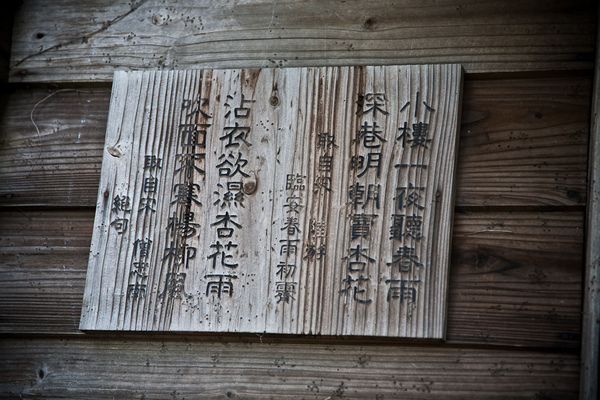 小樓一夜聽春雨
深巷明朝賣杏花
取自
臨安春雨初霽
沾衣欲濕杏花雨
吹面不寒楊柳風
取自宋 僧志南
絕句